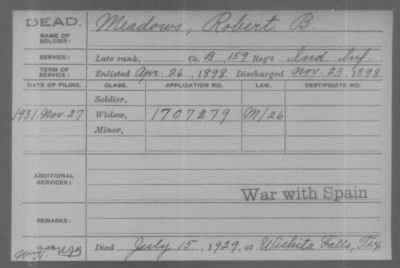 DEAD.
NAME OF SOLDIER:
Meadows, Robert B
SERVICE:
Late rank, Co. B, 159 Reg't Ind Inf.
TERM OF SERVICE:
Enlisted Apr. 26, 1898 Discharged Nov. 23, 1898.
DATE OF FILING. CLASS. APPLICATION NO. LAW. CERTIFICATE NO.
Soldier,
1931 Nov 27 Widow, 1707279 M/26
Minor,
ADDITIONAL SERVICES:
War with Spain
REMARKS:
Died July 15, 1929, at Wichita Falls, Tex.